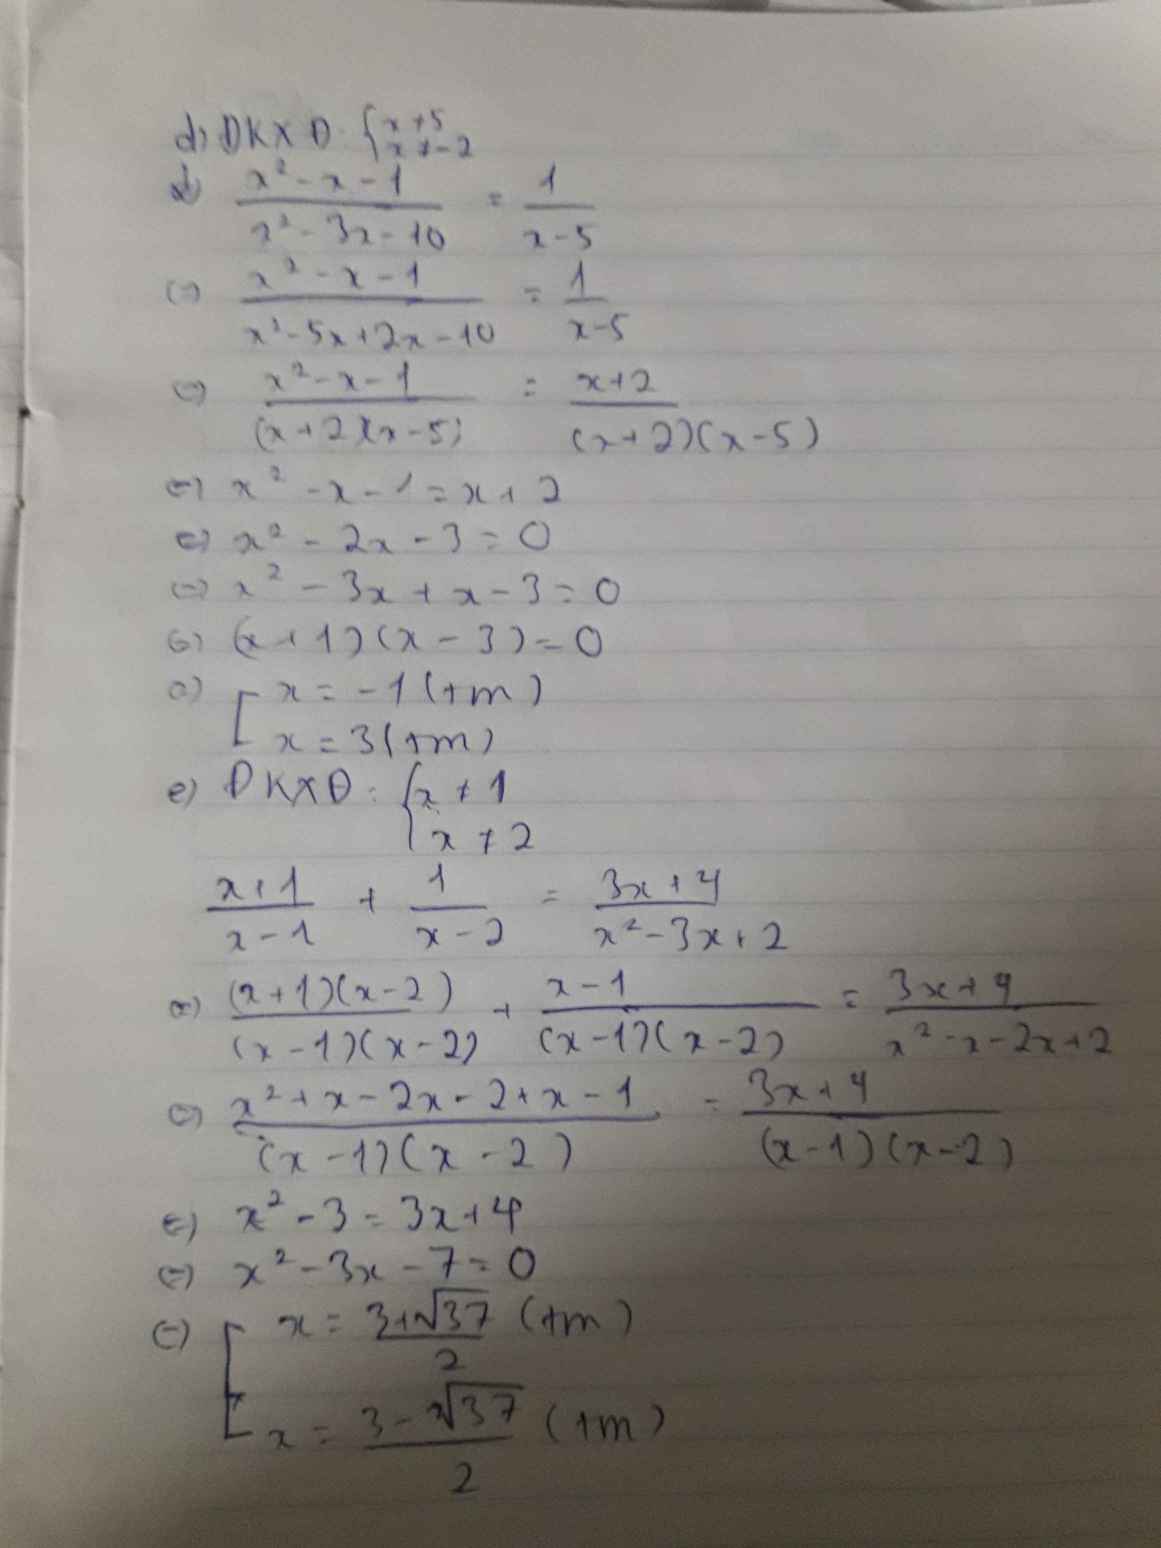 d) ĐKXĐ: { x ≠ 5
x ≠ -2
d) (x² - x - 1)/(x² - 3x - 10) = 1/(x - 5)
(=) (x² - x - 1)/(x² - 5x + 2x - 10) = 1/(x - 5)
(=) (x² - x - 1)/((x + 2)(x - 5)) = (x + 2)/((x + 2)(x - 5))
(=) x² - x - 1 = x + 2
(=) x² - 2x - 3 = 0
(=) x² - 3x + x - 3 = 0
(=) (x + 1)(x - 3) = 0
(=) [ x = -1 (tm)
x = 3 (tm)
e) ĐKXĐ: { x ≠ 1
x ≠ 2
(x + 1)/(x - 1) + 1/(x - 2) = (3x + 4)/(x² - 3x + 2)
(=) ((x + 1)(x - 2))/((x - 1)(x - 2)) + (x - 1)/((x - 1)(x - 2)) = (3x + 4)/(x² - x - 2x + 2)
(=) (x² + x - 2x - 2 + x - 1)/((x - 1)(x - 2)) = (3x + 4)/((x - 1)(x - 2))
(=) x² - 3 = 3x + 4
(=) x² - 3x - 7 = 0
(=) [ x = (3 + √37)/2 (tm)
x = (3 - √37)/2 (tm)